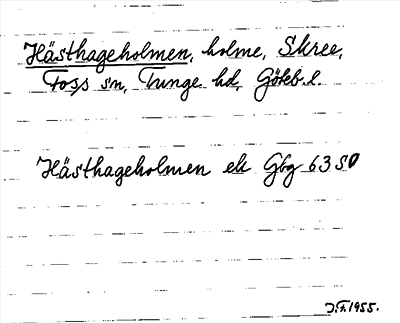 Hästhageholmen, holme, Skree,
Foss sn, Tunge hd, Göteb. l.
Hästhageholmen ek Gbg 63 SO
J.F. 1955.